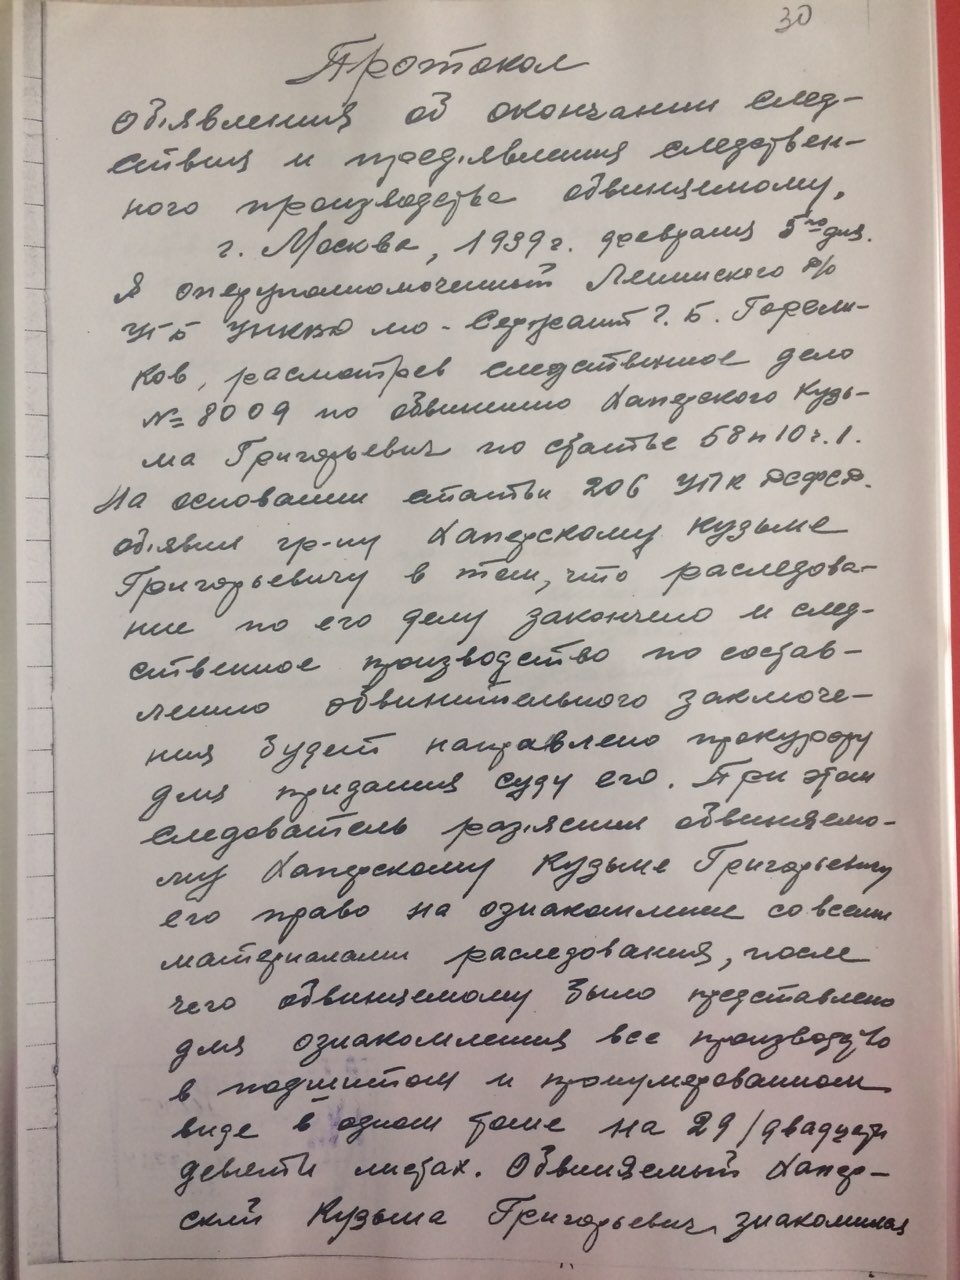 30
Протокол
Об,явления об окончании след-
ствия и пред,явления следствен-
ного производства обвиняемому.
г. Москва, 1939 г. февраля 5го дня.
Я оперуполномоченный Ленинского Р/О
УГБ УНКВД МО - Сержант Г. Б. Горели-
ков, расмотрев следственное дело
№ 8009 по обвинению Хаперского Кузь-
ма Григорьевич по статье 58 п 10 ч. 1.
На основании статьи 206 УПК РСФСР.
об,явил гр-ну Хаперскому Кузьме
Григорьевичу в том, что раследова-
ние по его делу закончено и след-
ственное производство по состав-
лению обвинительного заключе-
ния будет направлено прокурору
для придания суду его. При этом
следователь раз,яснил обвиняемо-
му Хаперскому Кузьме Григорьевичу
его право на ознакомление со всеми
материалами раследования, после
чего обвиняемому было представлено
для ознакомления все производство
в подшитом и пронумерованном
виде в одном томе на 29 /двадцати
девяти листах. Обвиняемый Хапер-
ский Кузьма Григорьевич знакомился